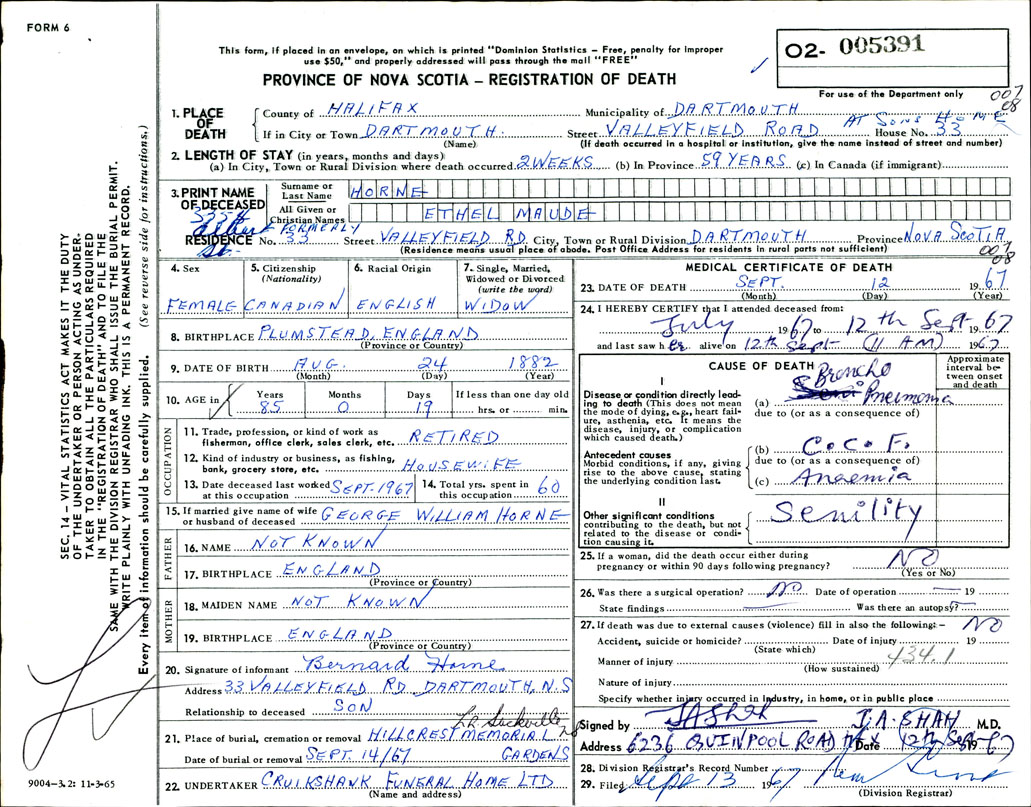 FORM 6
This form, if placed in an envelope, on which is printed "Dominion Statistics – Free, penalty for improper
use $50," and properly addressed will pass through the mail "FREE"
PROVINCE OF NOVA SCOTIA – REGISTRATION OF DEATH
02- 005391
For use of the Department only
007
08
1. PLACE OF DEATH
County of HALIFAX Municipality of DARTMOUTH
AT SONS HOME
If in City or Town DARTMOUTH. Street VALLEYFIELD ROAD House No. 33
(Name) (If death occurred in a hospital or institution, give the name instead of street and number)
2. LENGTH OF STAY (in years, months and days)
(a) In City, Town or Rural Division where death occurred 2 WEEKS (b) In Province 59 YEARS (c) In Canada (if immigrant)
3. PRINT NAME OF DECEASED
Surname or Last Name HORNE
All Given or Christian Names ETHEL MAUDE
FORMERLY
RESIDENCE No. 33 Street VALLEYFIELD RD. City, Town or Rural Division DARTMOUTH Province NOVA SCOTIA
(Residence means usual place of abode. Post Office Address for residents in rural parts not sufficient)
007
08
4. Sex FEMALE
5. Citizenship (Nationality) CANADIAN
6. Racial Origin ENGLISH
7. Single, Married, Widowed or Divorced (write the word) WIDOW
8. BIRTHPLACE PLUMSTEAD, ENGLAND
(Province or Country)
9. DATE OF BIRTH AUG. 24 1882
(Month) (Day) (Year)
10. AGE in Years Months Days If less than one day old
85 0 19 hrs. or min.
OCCUPATION
11. Trade, profession, or kind of work as
fisherman, office clerk, sales clerk, etc. RETIRED
12. Kind of industry or business, as fishing,
bank, grocery store, etc. HOUSEWIFE
13. Date deceased last worked at this occupation SEPT. 1967
14. Total yrs. spent in this occupation 60
15. If married give name of wife
or husband of deceased GEORGE WILLIAM HORNE
FATHER
16. NAME NOT KNOWN
17. BIRTHPLACE ENGLAND
(Province or Country)
MOTHER
18. MAIDEN NAME NOT KNOWN
19. BIRTHPLACE ENGLAND
(Province or Country)
20. Signature of informant Bernard Horne
Address 33 VALLEYFIELD RD. DARTMOUTH, N.S
Relationship to deceased SON
21. Place of burial, cremation or removal HILLCREST MEMORIAL
GARDENS
Date of burial or removal SEPT. 14/67
22. UNDERTAKER CRUIKSHANK FUNERAL HOME LTD
(Name and address)
MEDICAL CERTIFICATE OF DEATH
23. DATE OF DEATH SEPT. 12 1967
(Month) (Day) (Year)
24. I HEREBY CERTIFY that I attended deceased from:
July 1967 to 12th Sept 1967
and last saw her alive on 12th Sept (11 AM) 1967
CAUSE OF DEATH
Approximate interval between onset and death
I
Disease or condition directly leading to death (This does not mean
the mode of dying, e.g., heart failure, asthenia, etc. It means the
disease, injury, or complication
which caused death.)
(a) Broncho Pneumonia
due to (or as a consequence of)
Antecedent causes
Morbid conditions, if any, giving
rise to the above cause, stating
the underlying condition last.
(b) C.C.F.
due to (or as a consequence of)
(c) Anaemia
II
Other significant conditions
contributing to the death, but not
related to the disease or condition causing it.
Senility
25. If a woman, did the death occur either during
pregnancy or within 90 days following pregnancy? NO
(Yes or No)
26. Was there a surgical operation? NO Date of operation 19
State findings Was there an autopsy?
27. If death was due to external causes (violence) fill in also the following:– NO
Accident, suicide or homicide? Date of injury 19
(State which)
434.1
Manner of injury
(How sustained)
Nature of injury
Specify whether injury occurred in industry, in home, or in public place
Signed by JAShah J.A. SHAH M.D.
Address 6236 QUINPOOL ROAD HFX Date 12th Sept 1967
28. Division Registrar's Record Number
29. Filed Sept 13 1967
(Division Registrar)
SEC. 14 – VITAL STATISTICS ACT MAKES IT THE DUTY
OF THE UNDERTAKER OR PERSON ACTING AS UNDER-
TAKER TO OBTAIN ALL THE PARTICULARS REQUIRED
IN THE "REGISTRATION OF DEATH" AND TO FILE THE
SAME WITH THE DIVISION REGISTRAR WHO SHALL ISSUE THE BURIAL PERMIT.
WRITE PLAINLY WITH UNFADING INK. THIS IS A PERMANENT RECORD.
Every item of information should be carefully supplied. (See reverse side for instructions.)
9004-3.2: 11-3-65